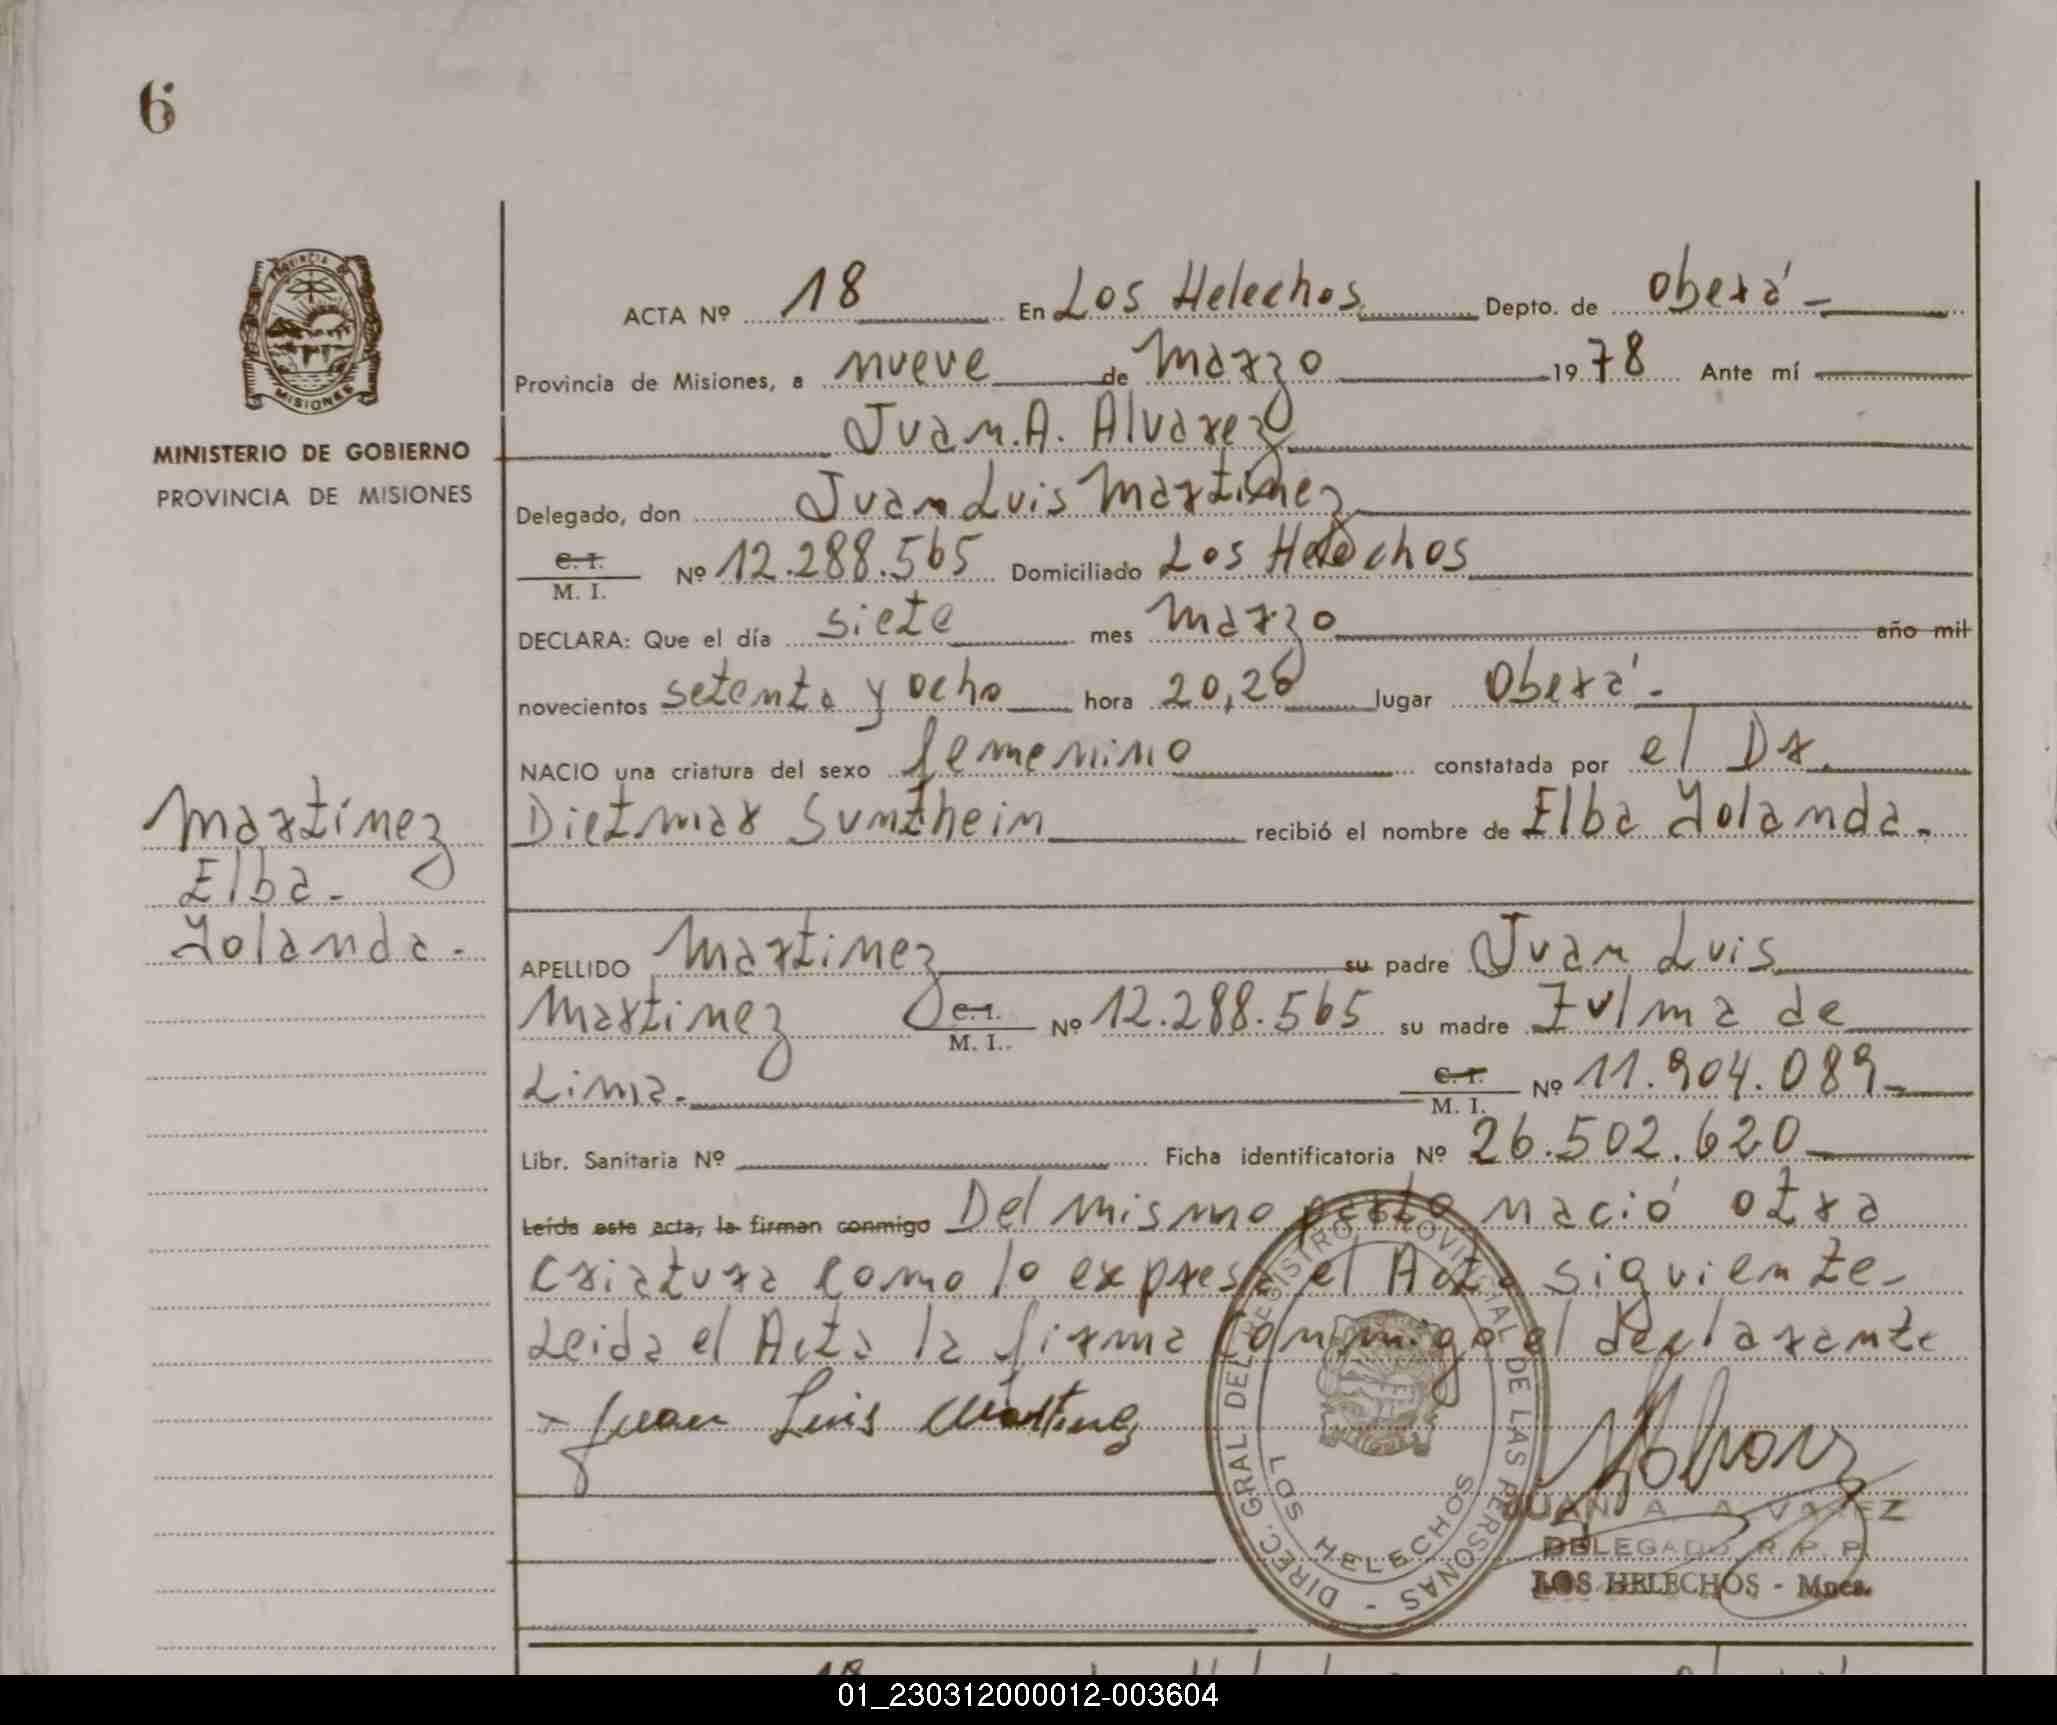 6
PROVINCIA DE
MISIONES
MINISTERIO DE GOBIERNO
PROVINCIA DE MISIONES
Martínez
Elba.
Yolanda.
ACTA Nº 18 En Los Helechos Depto. de Oberá
Provincia de Misiones, a nueve de Marzo 1978 Ante mí
Juan. A. Alvarez
Delegado, don Juan Luis Martinez
C. I.
M. I. Nº 12.288.565 Domiciliado Los Helechos
DECLARA: Que el día siete mes Marzo año mil
novecientos setenta y ocho hora 20,20 lugar Oberá.
NACIO una criatura del sexo femenino constatada por el Dr.
Dietmar Suntheim recibió el nombre de Elba Yolanda.
APELLIDO Martinez su padre Juan Luis
Martinez C. I.
M. I. Nº 12.288.565 su madre Zulma de
Lima. C. I.
M. I. Nº 11.904.089
Libr. Sanitaria Nº Ficha identificatoria Nº 26.502.620
Leída este acta, la firman conmigo Del mismo parto nació otra
criatura como lo expresa el Acta siguiente.
Leida el Acta la firma conmigo el declarante
Juan Luis Martinez
DIREC. GRAL DEL REGISTRO PROVINCIAL DE LAS PERSONAS -
LOS HELECHOS
JUAN A. ALVAREZ
DELEGADO R. P. P.
LOS HELECHOS - Mnes.
18
01_230312000012-003604